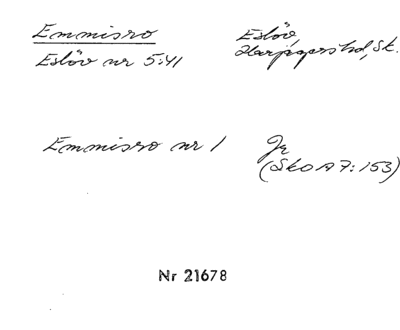 Emmisro
Eslöv nr 5:41
Eslöv,
Harjagers hd, Sk.
Emmisro nr 1
Jr
(SkO A 7:153)
Nr 21678